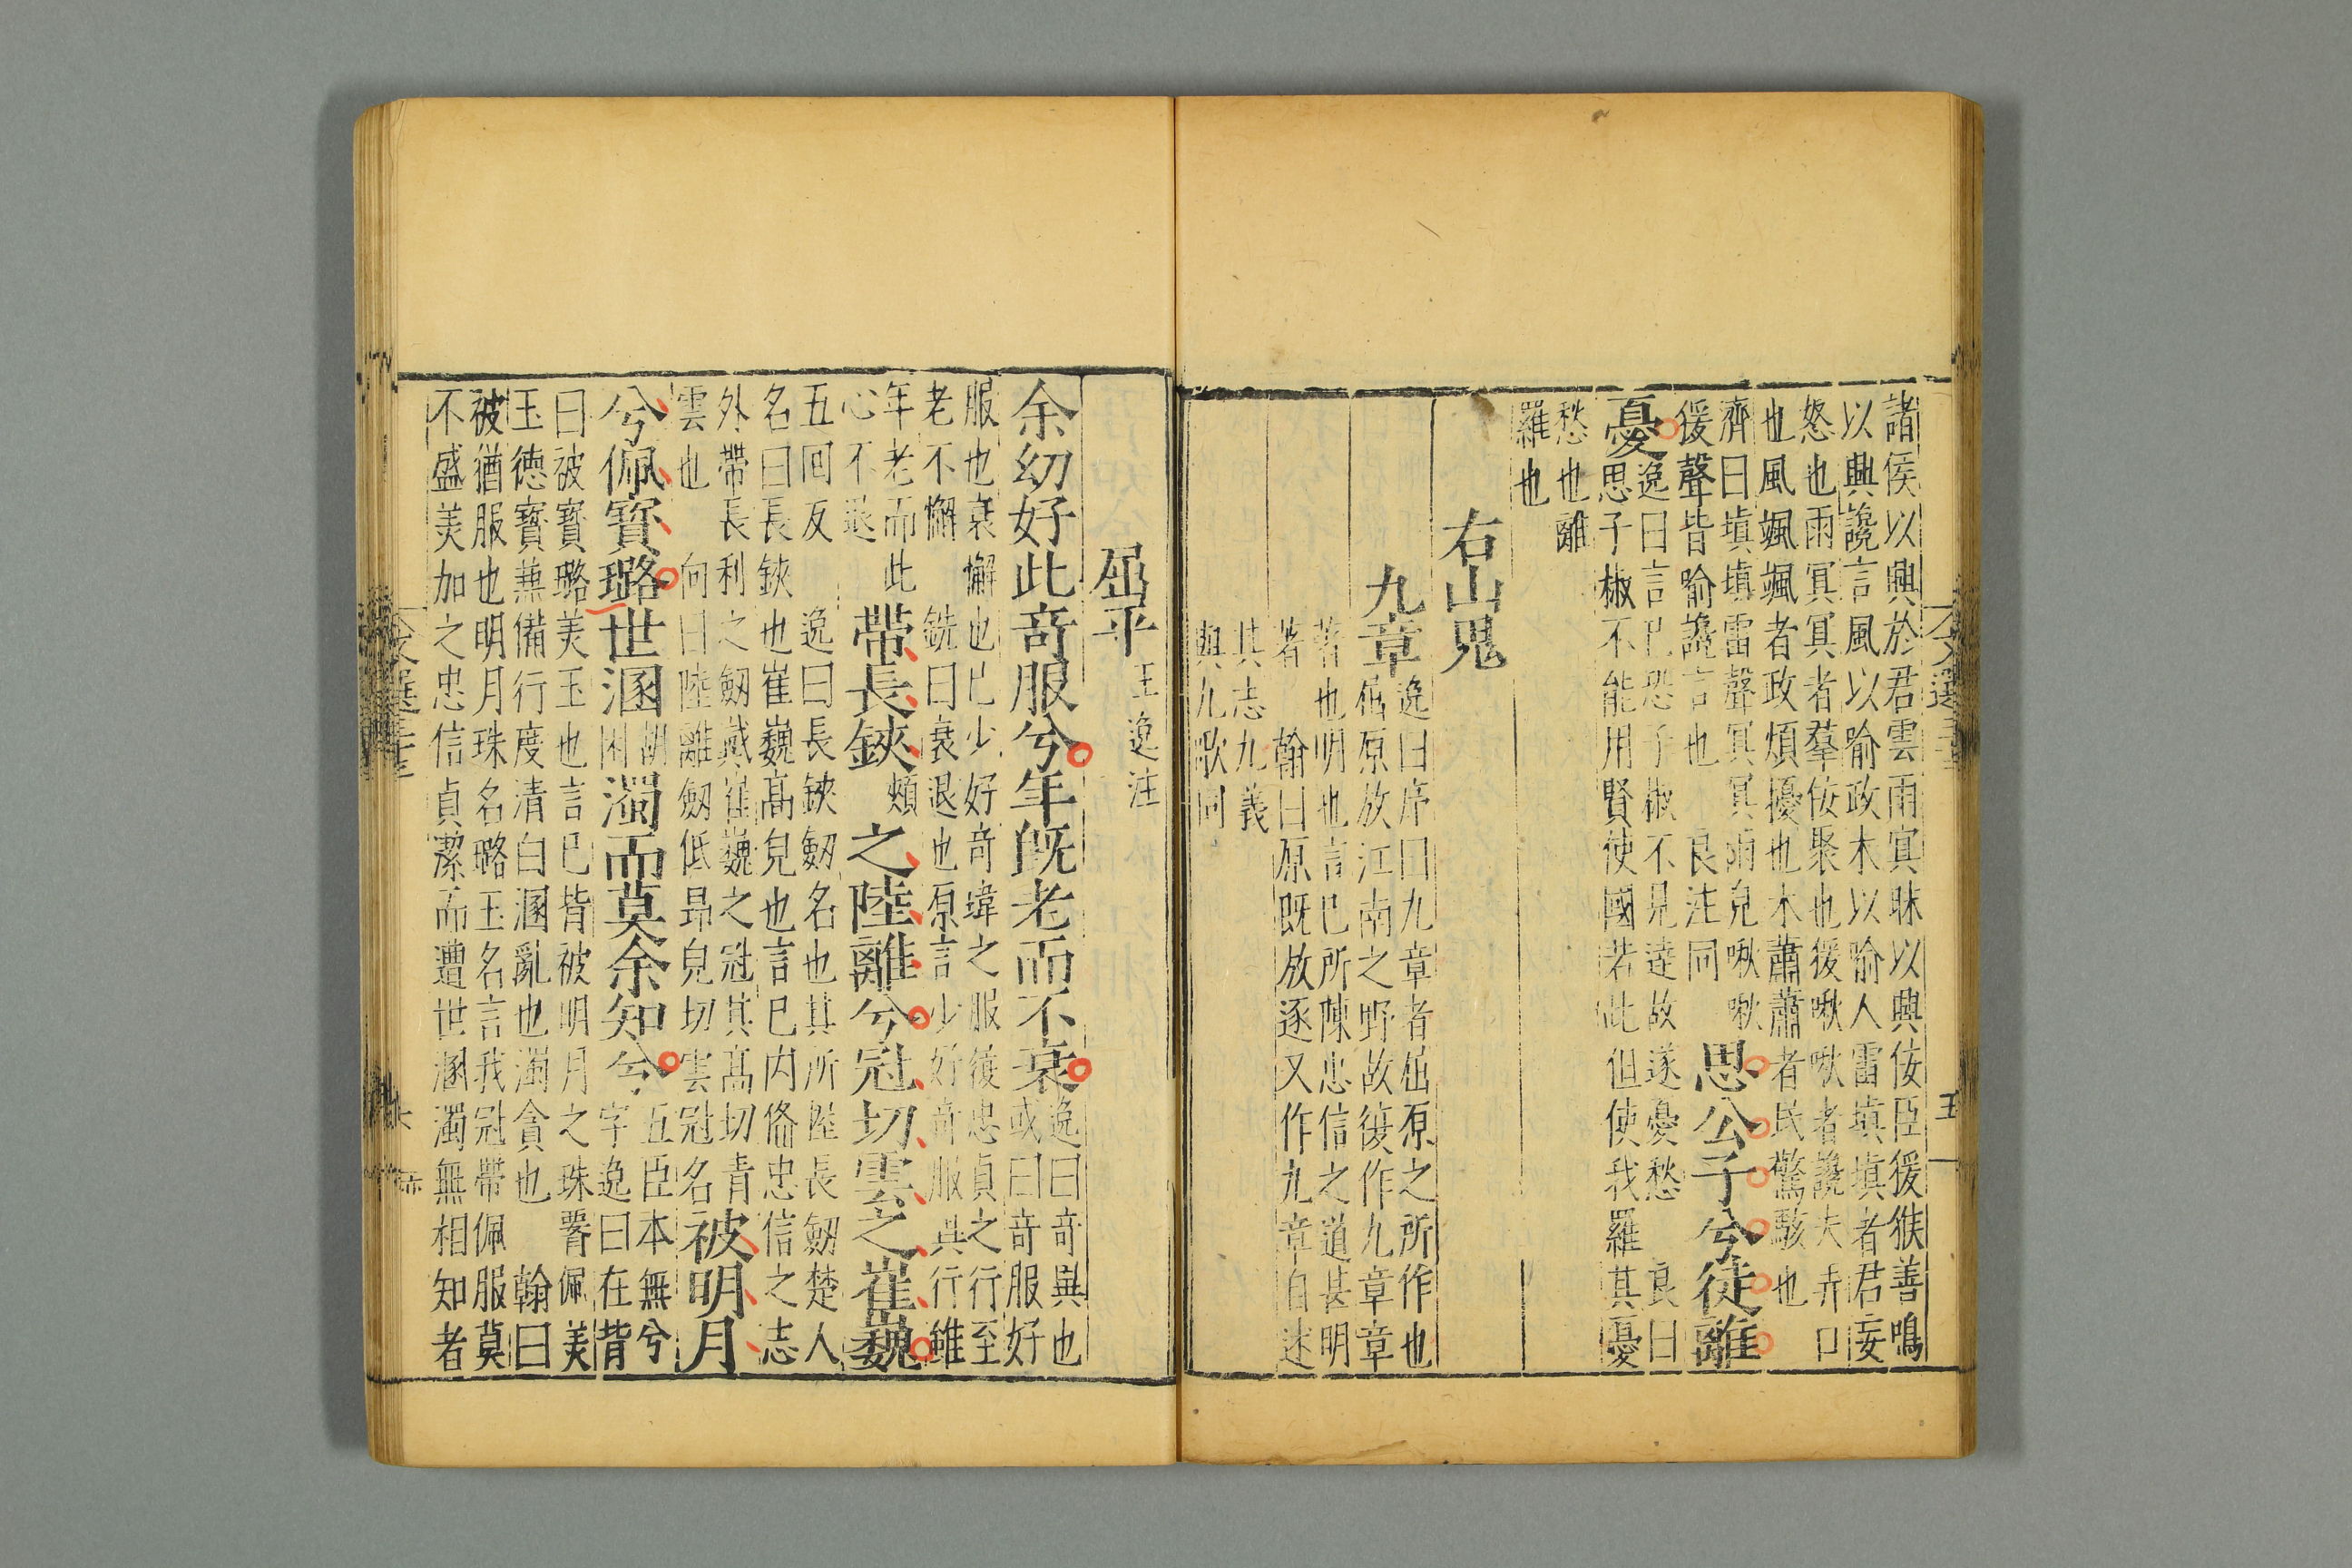 諸侯以興於君雲雨冥昧以興佞臣猨猴善鳴
以興讒言風以喻政木以喻人雷填填者君妄
怒也雨冥冥者羣佞聚也猨啾啾者讒夫弄口
也風颯颯者政煩擾也木蕭蕭者民驚駭也
齊曰填填雷聲冥冥雨皃啾啾
猨聲皆喻讒言也 良注同 思公子兮徒離
憂
逸曰言己恐子椒不見達故遂憂愁 良曰
思子椒不能用賢使國若此但使我羅其憂
愁也離
羅也
右山鬼
九章
逸曰序曰九章者屈原之所作也
屈原放江南之野故復作九章章
著也明也言已所陳忠信之道甚明
著 翰曰原既放逐又作九章自述
其志九義
與九歌同
屈平 王逸注
余幼好此奇服兮年既老而不衰
逸曰奇異也
或曰奇服好
服也衰懈也已少好奇瑋之服復忠貞之行至
老不懈 銑曰衰退也原言少好奇服其行雖
年老而此
心不退
帶長鋏
頰
之陸離兮冠切雲之崔巍
五回反 逸曰長鋏劒名也其所陸長劒楚人
名曰長鋏也崔巍高皃也言已内脩忠信之志
外帶長利之劒戴崔巍之冠其高切青
雲也 向曰陸離劒低昂皃切雲冠名 被明月
兮佩寶璐世溷
胡
困
濁而莫余知兮
五臣本無兮
字逸曰在背
曰被寶璐美玉也言已背被明月之珠署佩美
玉德寳兼備行度清白溷亂也濁貪也 翰曰
被猶服也明月珠名璐玉名言我冠帶佩服莫
不盛美加之忠信貞潔而遭世溷濁無相知者